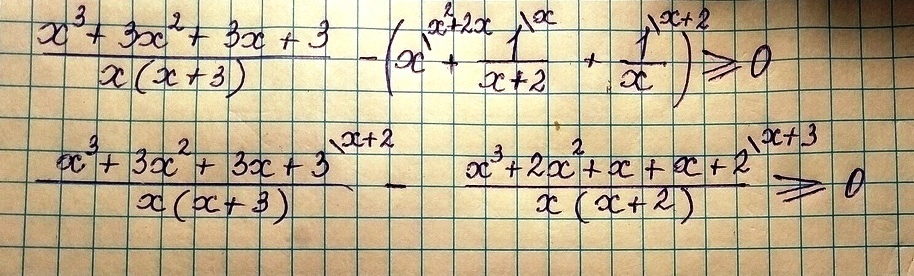 (x³ + 3x² + 3x + 3) / (x(x+3)) - (x\^(x²+2x) + 1\^x / (x+2) + 1\^(x+2) / x) ⩾ 0
(x³ + 3x² + 3x + 3)\^(x+2) / (x(x+3)) - (x³ + 2x² + x + x + 2)\^(x+3) / (x(x+2)) ⩾ 0